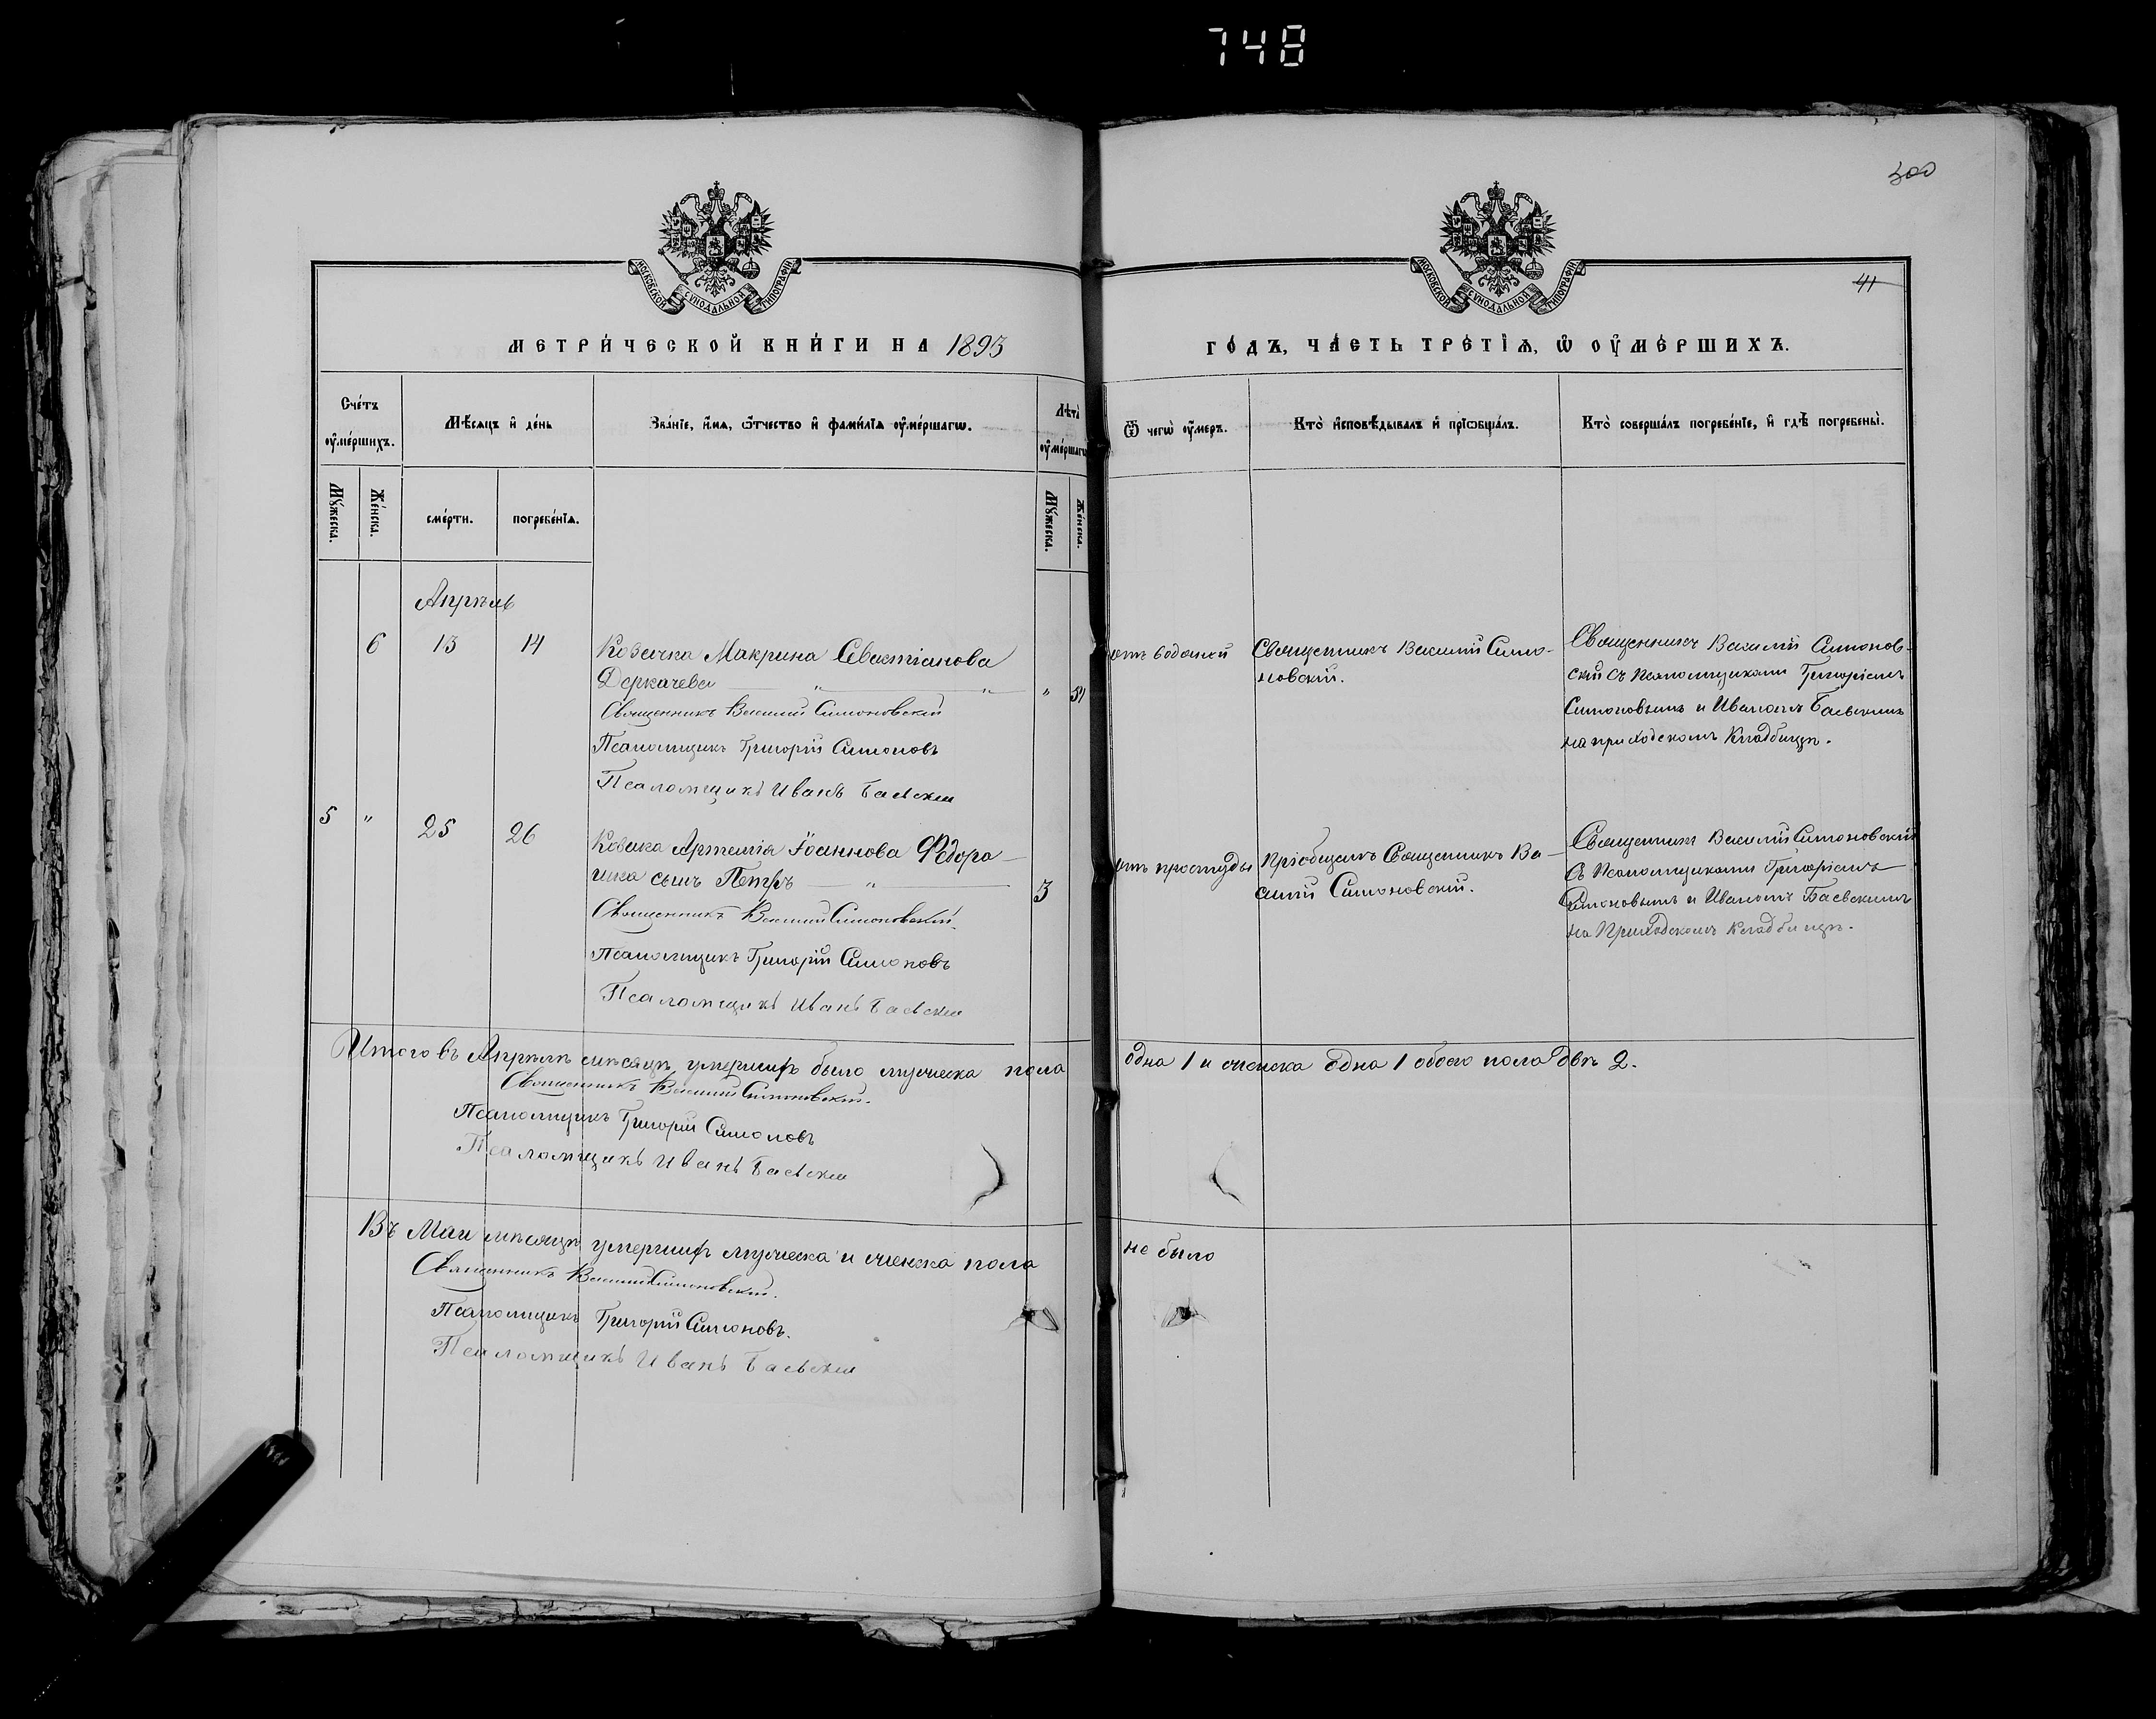 748
300
МОСКОВСКОЙ СѴНОДАЛЬНОЙ ТИПОГРАФІИ
МОСКОВСКОЙ СѴНОДАЛЬНОЙ ТИПОГРАФІИ
41
МЕТРИ́ЧЕСКОЙ КНИ́ГИ НА 1893
ГО́ДЪ, ЧА́СТЬ ТРЕ́ТІѦ, Ѡ҆ ОУ҆МЕ́РШИХЪ.
Сче́тъ
оу҆ме́ршихъ.
Мѣ́сяцъ и҆ де́нь
Зва́нїе, и҆́мѧ, ѻ҆́тчество и҆ фами́лїѧ оу҆ме́ршагѡ.
Лѣта̀
оу҆ме́ршагѡ
Ѿ чегѡ̀ оу҆́меръ.
Кто̀ и҆сповѣ́дывалъ и҆ прїѡбща́лъ.
Кто̀ соверша́лъ погребе́нїе, и҆ гдѣ̀ погребены̀.
Мꙋ́жеска.
Же́нска.
сме́рти.
погребе́нїѧ.
Мꙋ́жеска.
Же́нска.
Апрѣль
6 13 14
Козачка Макрина Севастіанова
Деркачева — " — " —
" 51
Священникъ Василій Симоновскій
Псаломщикъ Григорій Симоновъ
Псаломщикъ Иванъ Баевскій
отъ водянки
Священникъ Василій Симо-
новскій.
Священникъ Василій Симонов-
скій съ Псаломщиками Григоріемъ
Симоновымъ и Иваномъ Баевскимъ
на приходскомъ кладбищѣ.
5 " 25 26
Козака Артемія Іоаннова Федора-
шка сынъ Петръ — " —
3
Священникъ Василій Симоновскій.
Псаломщикъ Григорій Симоновъ
Псаломщикъ Иванъ Баевскій
отъ простуды
Пріобщалъ Священникъ Ва-
силій Симоновскій.
Священникъ Василій Симоновскій
съ Псаломщиками Григоріемъ
Симоновымъ и Иваномъ Баевскимъ
на Приходскомъ кладбищѣ.
Итого въ Апрѣлѣ мѣсяцѣ умершихъ было мужеска пола
одна 1 и женска одна 1 обоего пола двѣ 2.
Священникъ Василій Симоновскій.
Псаломщикъ Григорій Симоновъ
Псаломщикъ Иванъ Баевскій
Въ Маи мѣсяцѣ умершихъ мужеска и женска пола
не было
Священникъ Василій Симоновскій.
Псаломщикъ Григорій Симоновъ.
Псаломщикъ Иванъ Баевскій